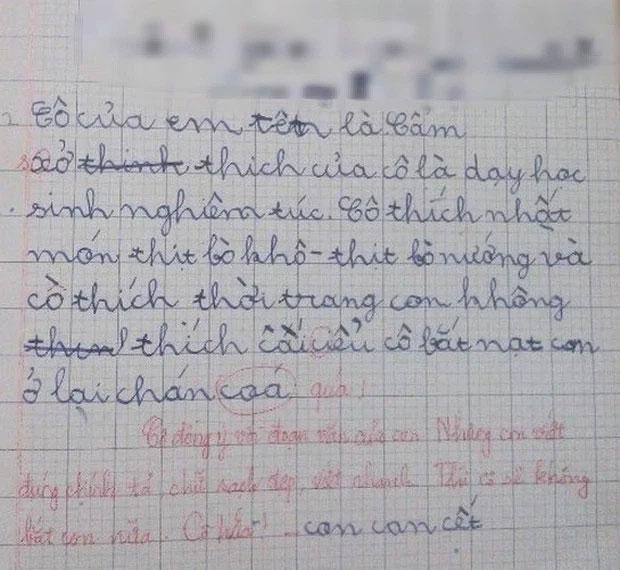 Cô của em tên là Cẩm
sở thinh thích của cô là dạy học
sinh nghiêm túc. Cô thích nhất
món thịt bò khô - thịt bò nướng và
cô thích thời trang con không
thích cái iểu cô bắt nạt con
ở lại chán coá quá!
Cô đồng ý với đoạn văn của con Nhưng con viết
đúng chính tả chữ sạch đẹp, viết nhanh. Thì cô sẽ không
bắt con nữa. Cô hứa! con con cết